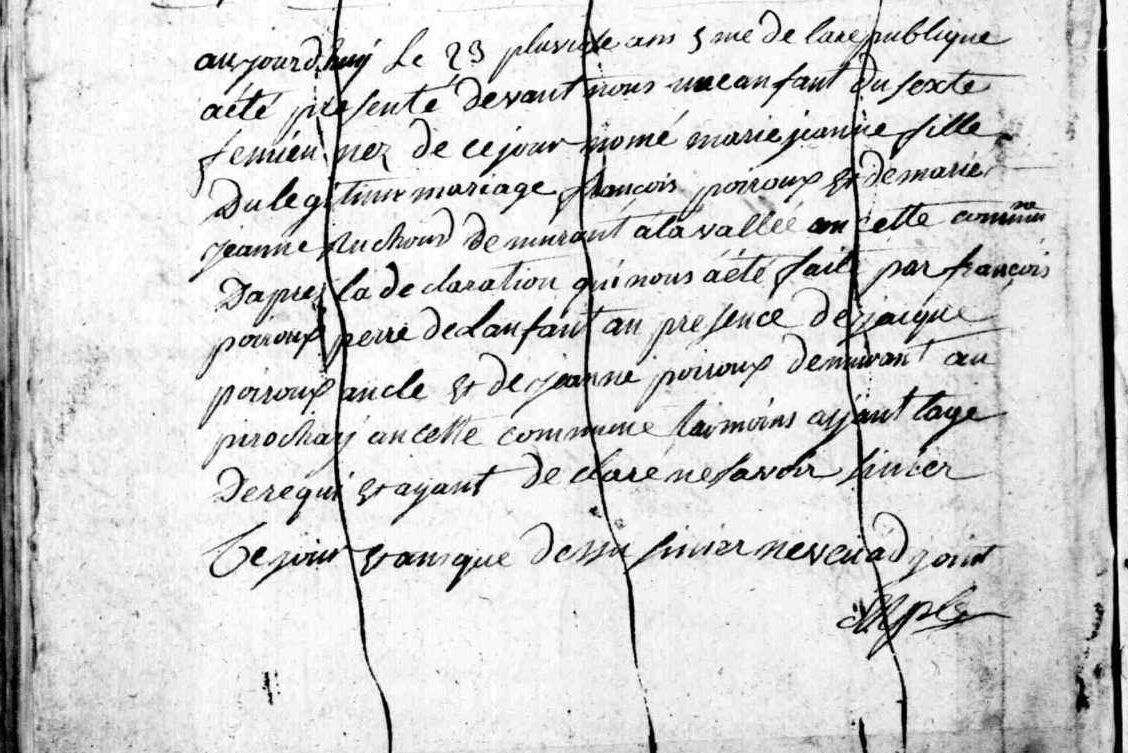 aujourdhuÿ le 23 pluviose ans 5 me de la republique
a été presenté devant nous un enfant du sexte
femien nez de ce jour nomé marie jeanne fille
Du legitime mariage françois poiroux et de marie
jeanne demurant a la vallée an cette commune
Daprez la declaration qui nous a été faite par françois
poiroux perre de lanfant an presence de jacque
poiroux ancle et de jeanne poiroux demurant au
prochaÿ an cette commune taimoins aÿant lage
De requi et ayant declaré ne savoir sinier
Ce jour et ans que dessu sinier neveu adjoint